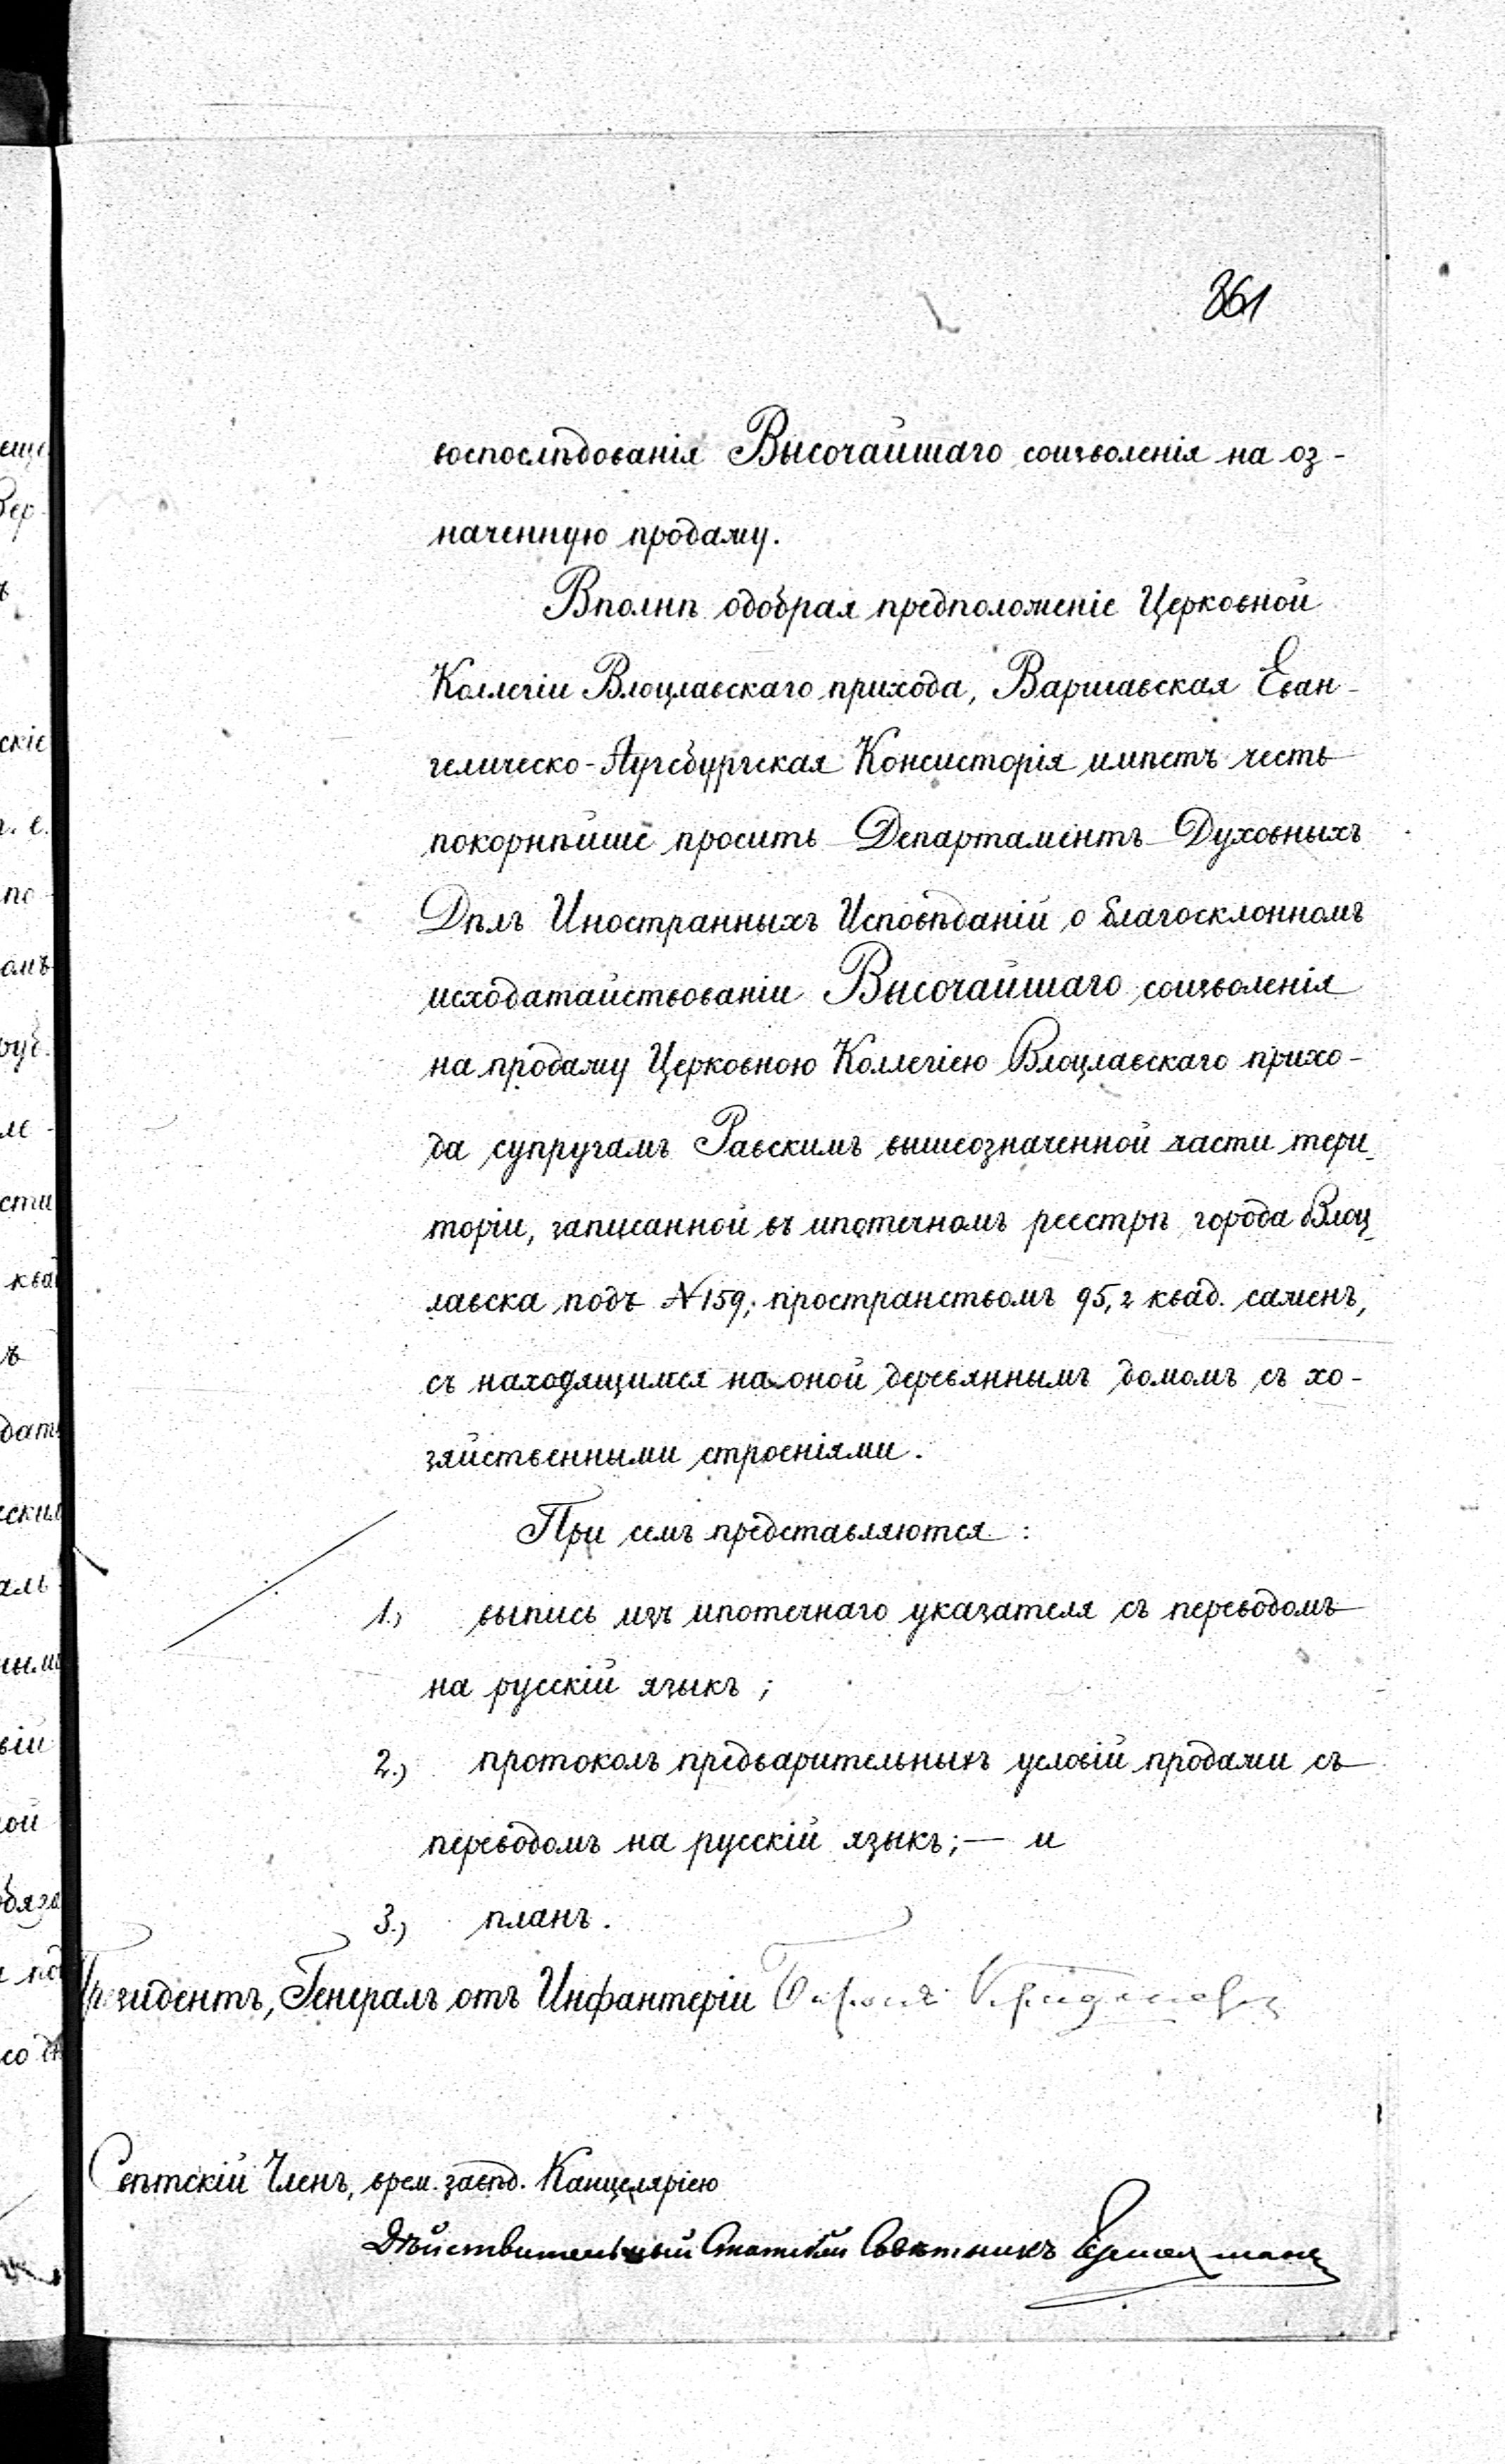 361
воспослѣдованія Высочайшаго соизволенія на оз-
наченную продажу.
Вполнѣ одобряя предположеніе Церковной
Коллегіи Влоцлавскаго прихода, Варшавская Еван-
гелическо-Аугсбургская Консисторія имѣетъ честь
покорнѣйше просить Департаментъ Духовныхъ
Дѣлъ Иностранныхъ Исповѣданій о благосклонномъ
исходатайствованіи Высочайшаго соизволенія
на продажу Церковною Коллегіею Влоцлавскаго прихо-
да супругамъ Равскимъ вышеозначенной части тери-
торіи, записанной въ ипотечномъ реестрѣ города Влоц-
лавска подъ №159, пространствомъ 95,2 квад. сажень,
съ находящимся на оной деревяннымъ домомъ съ хо-
зяйственными строеніями.
При семъ представляются:
1.) выпись изъ ипотечнаго указателя съ переводомъ
на русскій языкъ;
2.) протоколъ предварительныхъ условій продажи съ
переводомъ на русскій языкъ; — и
3.) планъ.
Президентъ, Генералъ отъ Инфантеріи Баронъ
Свѣтскій Членъ, врем. завѣд. Канцеляріею
Дѣйствительный Статскій Совѣтникъ